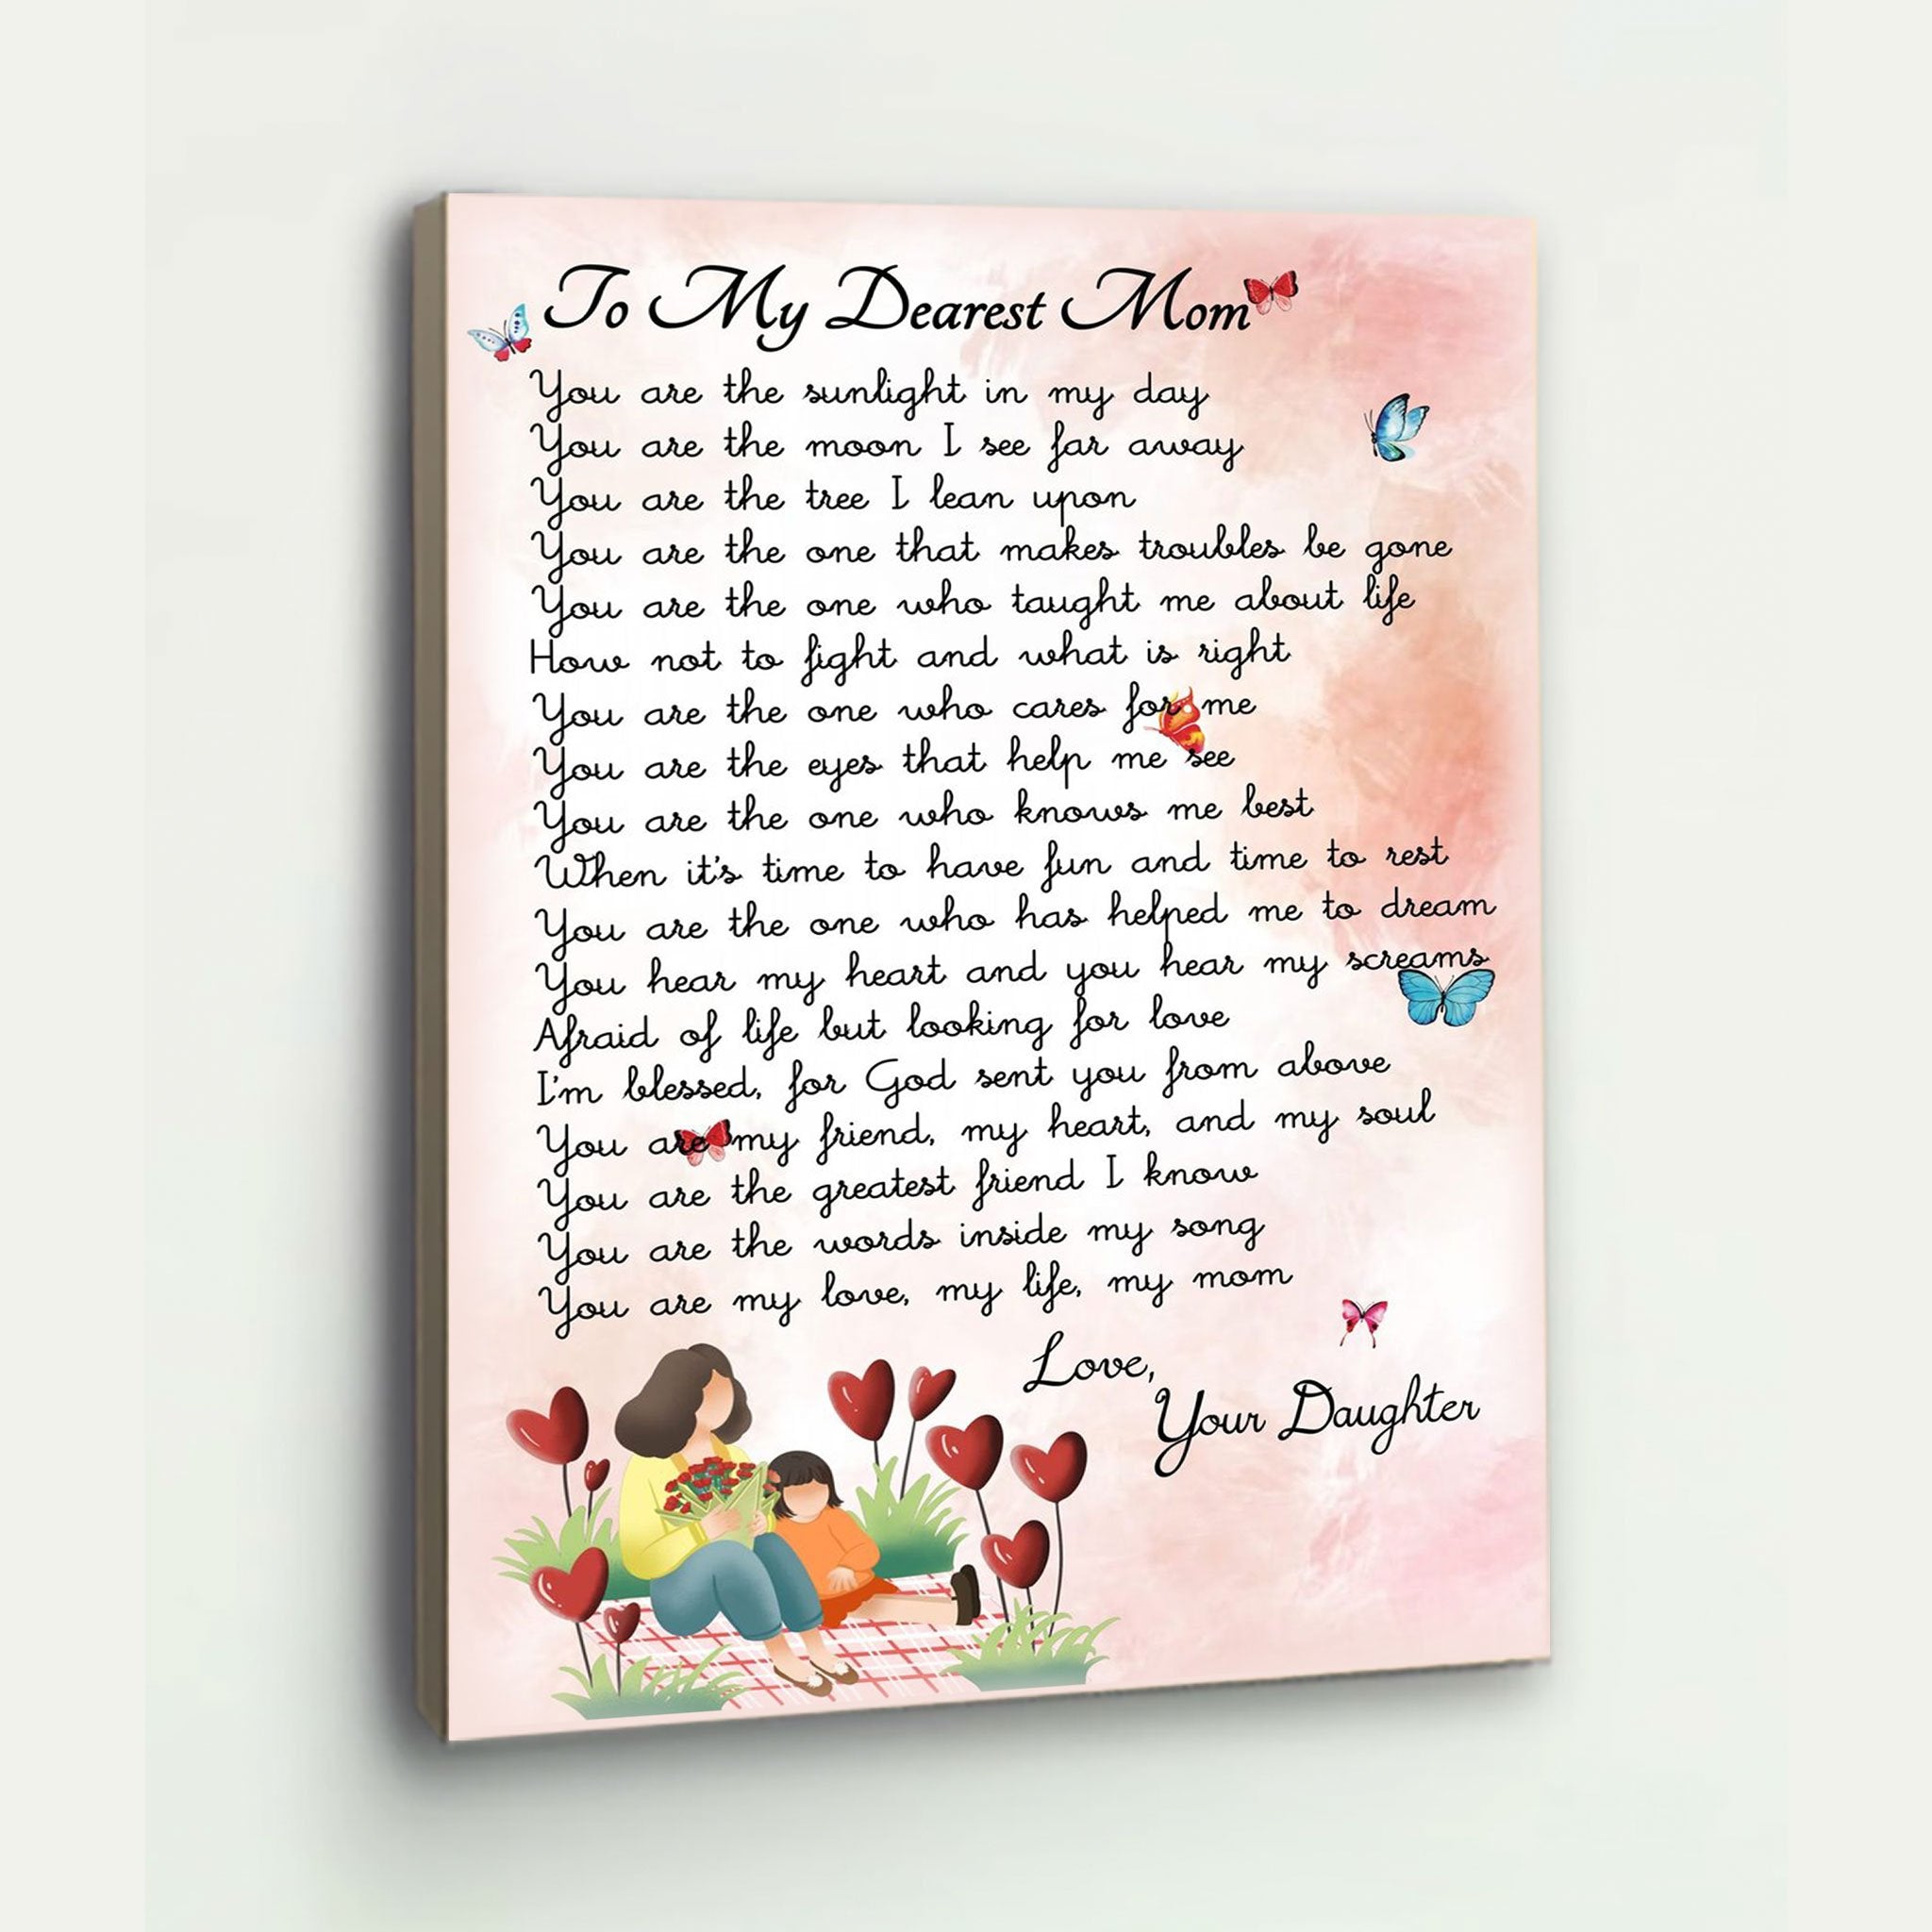 To My Dearest Mom
You are the sunlight in my day
You are the moon I see far away
You are the tree I lean upon
You are the one that makes troubles be gone
You are the one who taught me about life
How not to fight and what is right
You are the one who cares for me
You are the eyes that help me see
You are the one who knows me best
When it's time to have fun and time to rest
You are the one who has helped me to dream
You hear my heart and you hear my screams
Afraid of life but looking for love
I'm blessed, for God sent you from above
You are my friend, my heart, and my soul
You are the greatest friend I know
You are the words inside my song
You are my love, my life, my mom
Love,
Your Daughter